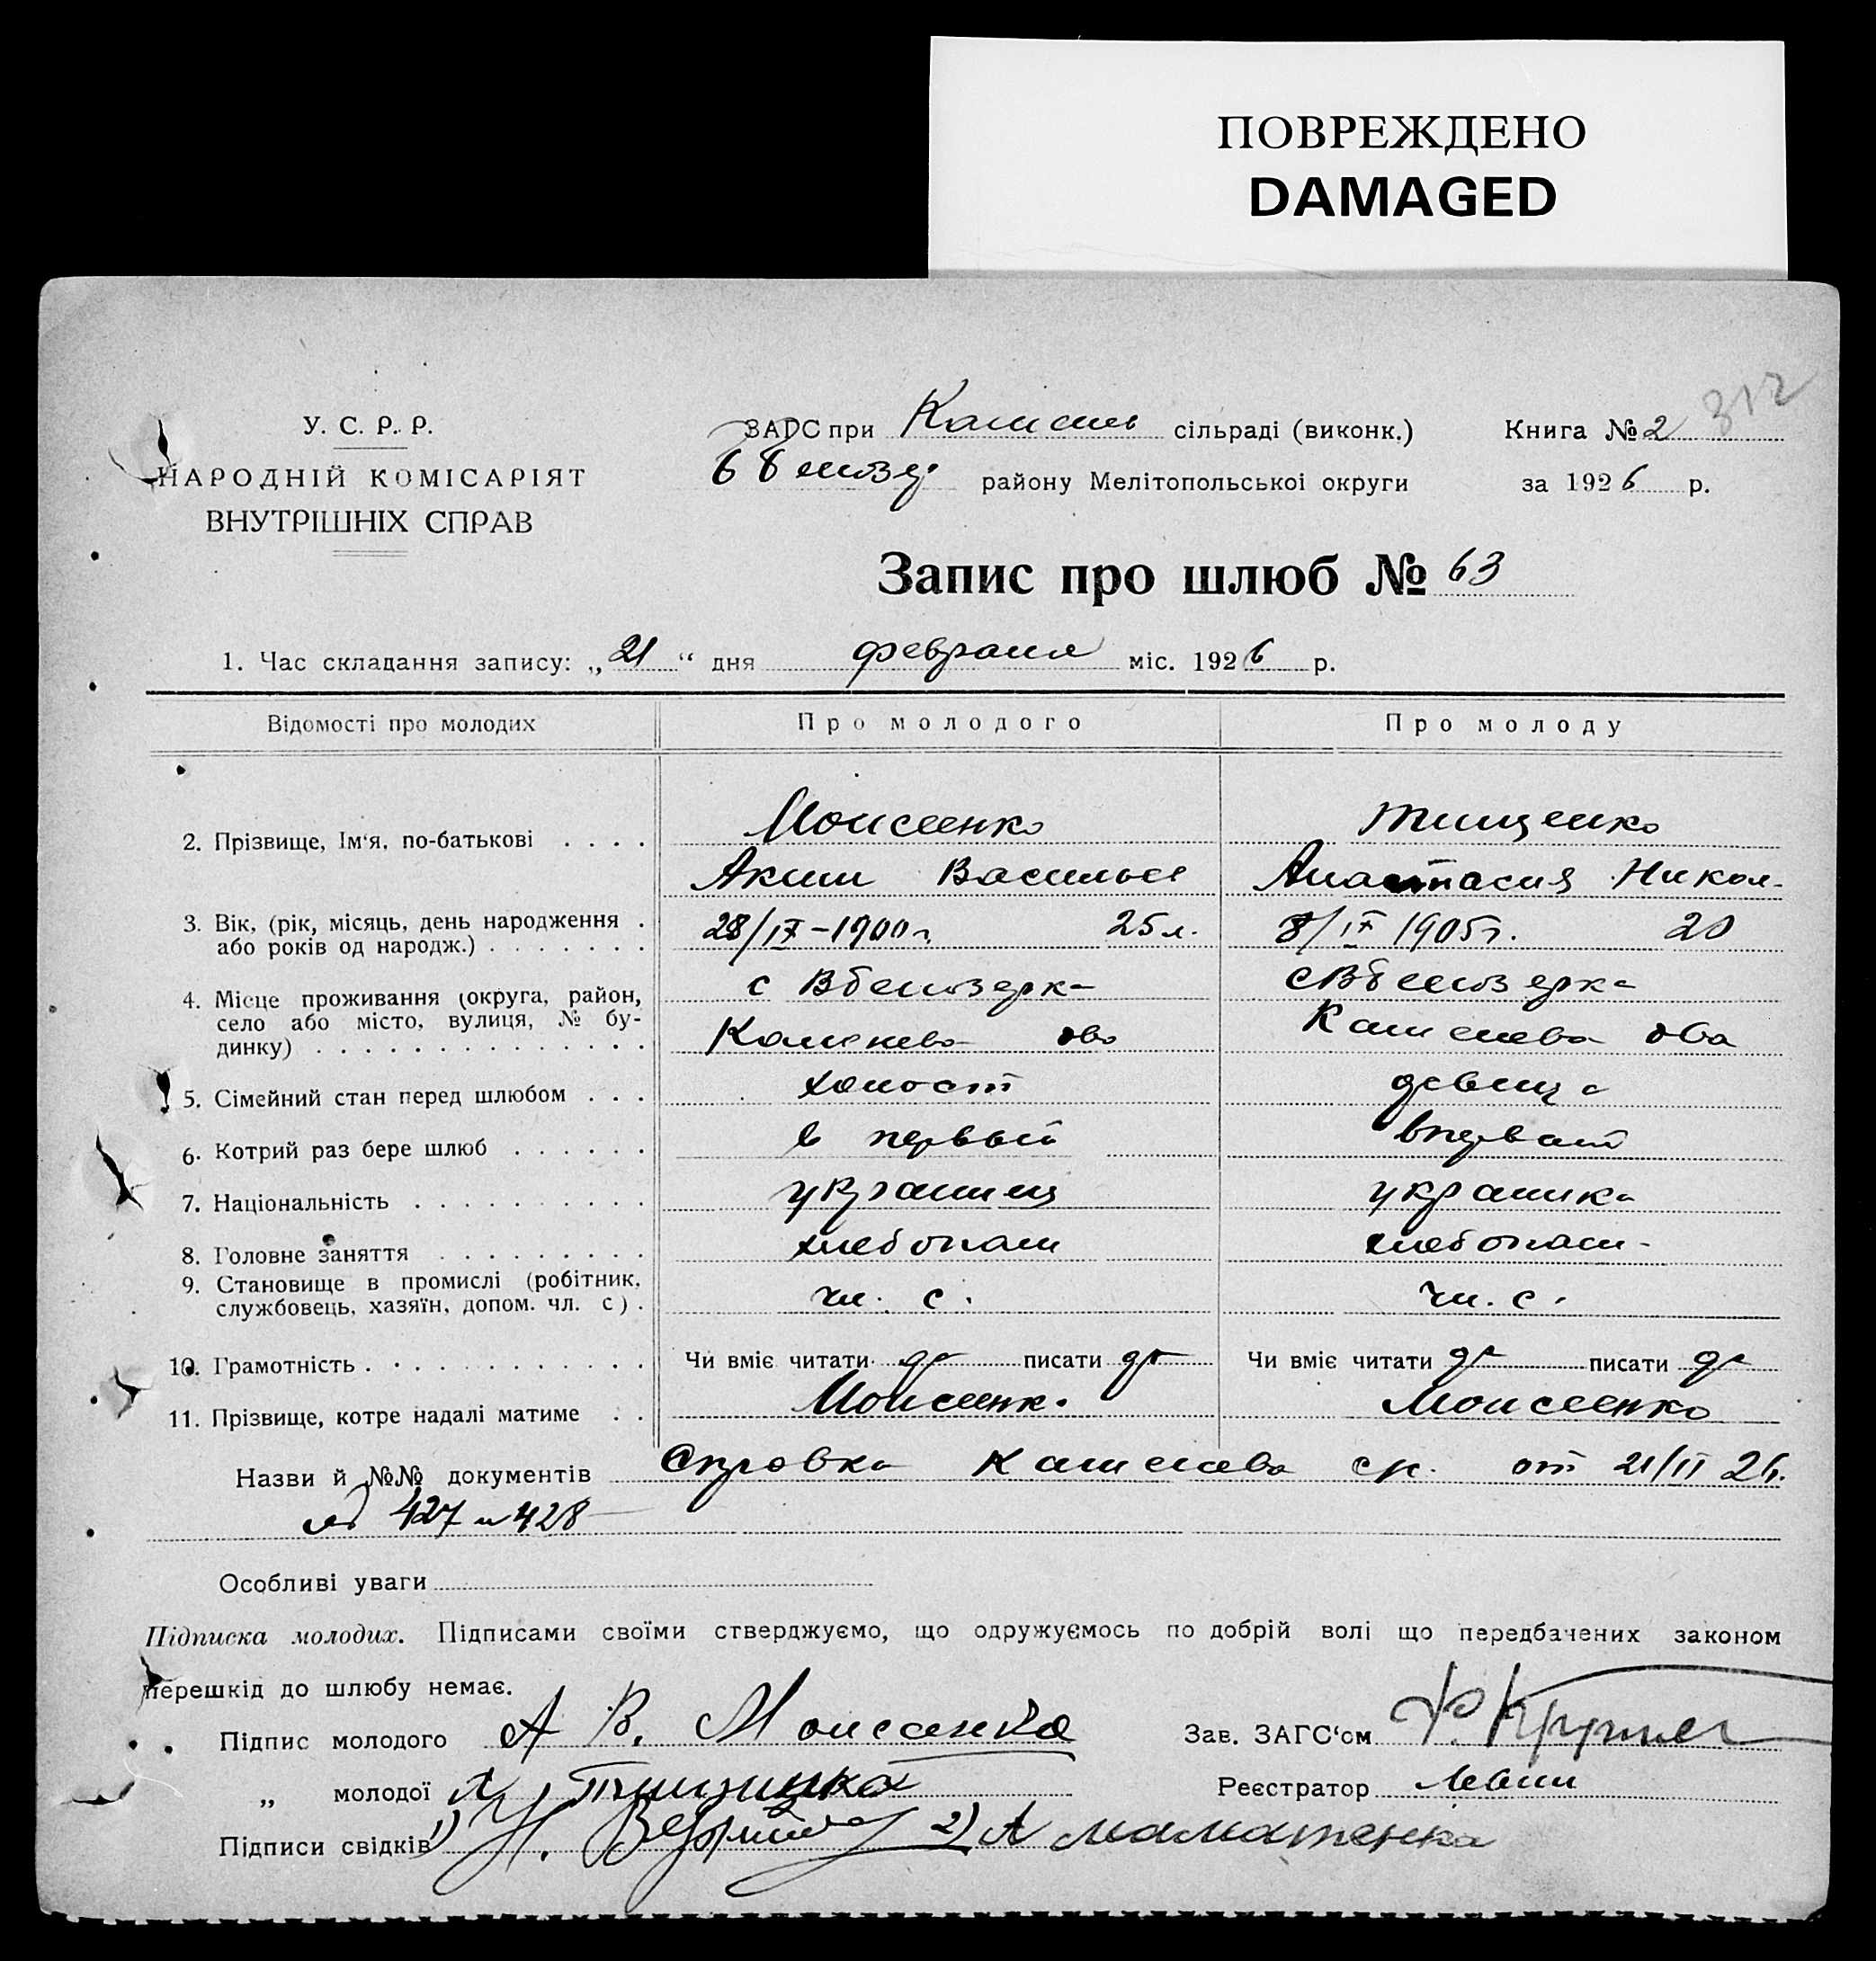 ПОВРЕЖДЕНО
DAMAGED
312
У. С. Р. Р.
НАРОДНІЙ КОМІСАРІЯТ
ВНУТРІШНІХ СПРАВ
ЗАГС при Камень сільраді (виконк.) Книга № 2
району Мелітопольської округи за 1926 р.
Запис про шлюб № 63
1. Час складання запису: „21“ дня февраля міс. 1926 р.
Відомості про молодих Про молодого Про молоду
2. Прізвище, Ім‘я, по-батькові . . . . Моисеенко Тищенко
Аким Василье Анастасия Никол-
3. Вік, (рік, місяць, день народження . або років од народж.) . . . . . . . 28/IX-1900г. 25 л. 8/IX 1905г. 20
4. Місце проживання (округа, район, село або місто, вулиця, № будинку) . . . . . . . . . . . . . . с Вбелозерка с Вбелозерка
Каменева ова Каменева ова
5. Сімейний стан перед шлюбом . . . холост девица
6. Котрий раз бере шлюб . . . . . . в первый
7. Національність . . . . . . . . . . украинец украинка
8. Головне заняття . . . . . . . . . хлебопаш хлебопаш-
9. Становище в промислі (робітник, службовець, хазяїн, допом. чл. с) . чл. с. чл. с.
10. Грамотність . . . . . . . . . . . . Чи вміє читати да писати да Чи вміє читати да писати да
11. Прізвище, котре надалі матиме . . Моисеенк. Моисеенко
Назви й №№ документів Справка Каменева ср. от 21/II 26.
№ 427 и 428
Особливі уваги
Підписка молодих. Підписами своїми стверджуємо, що одружуємось по добрій волі що передбачених законом
перешкід до шлюбу немає.
Підпис молодого А В. Моисеенко Зав. ЗАГС‘ом
„ молодої А Тищенко Реєстратор Левин
Підписи свідків 1) Н. 2) А Маматенко